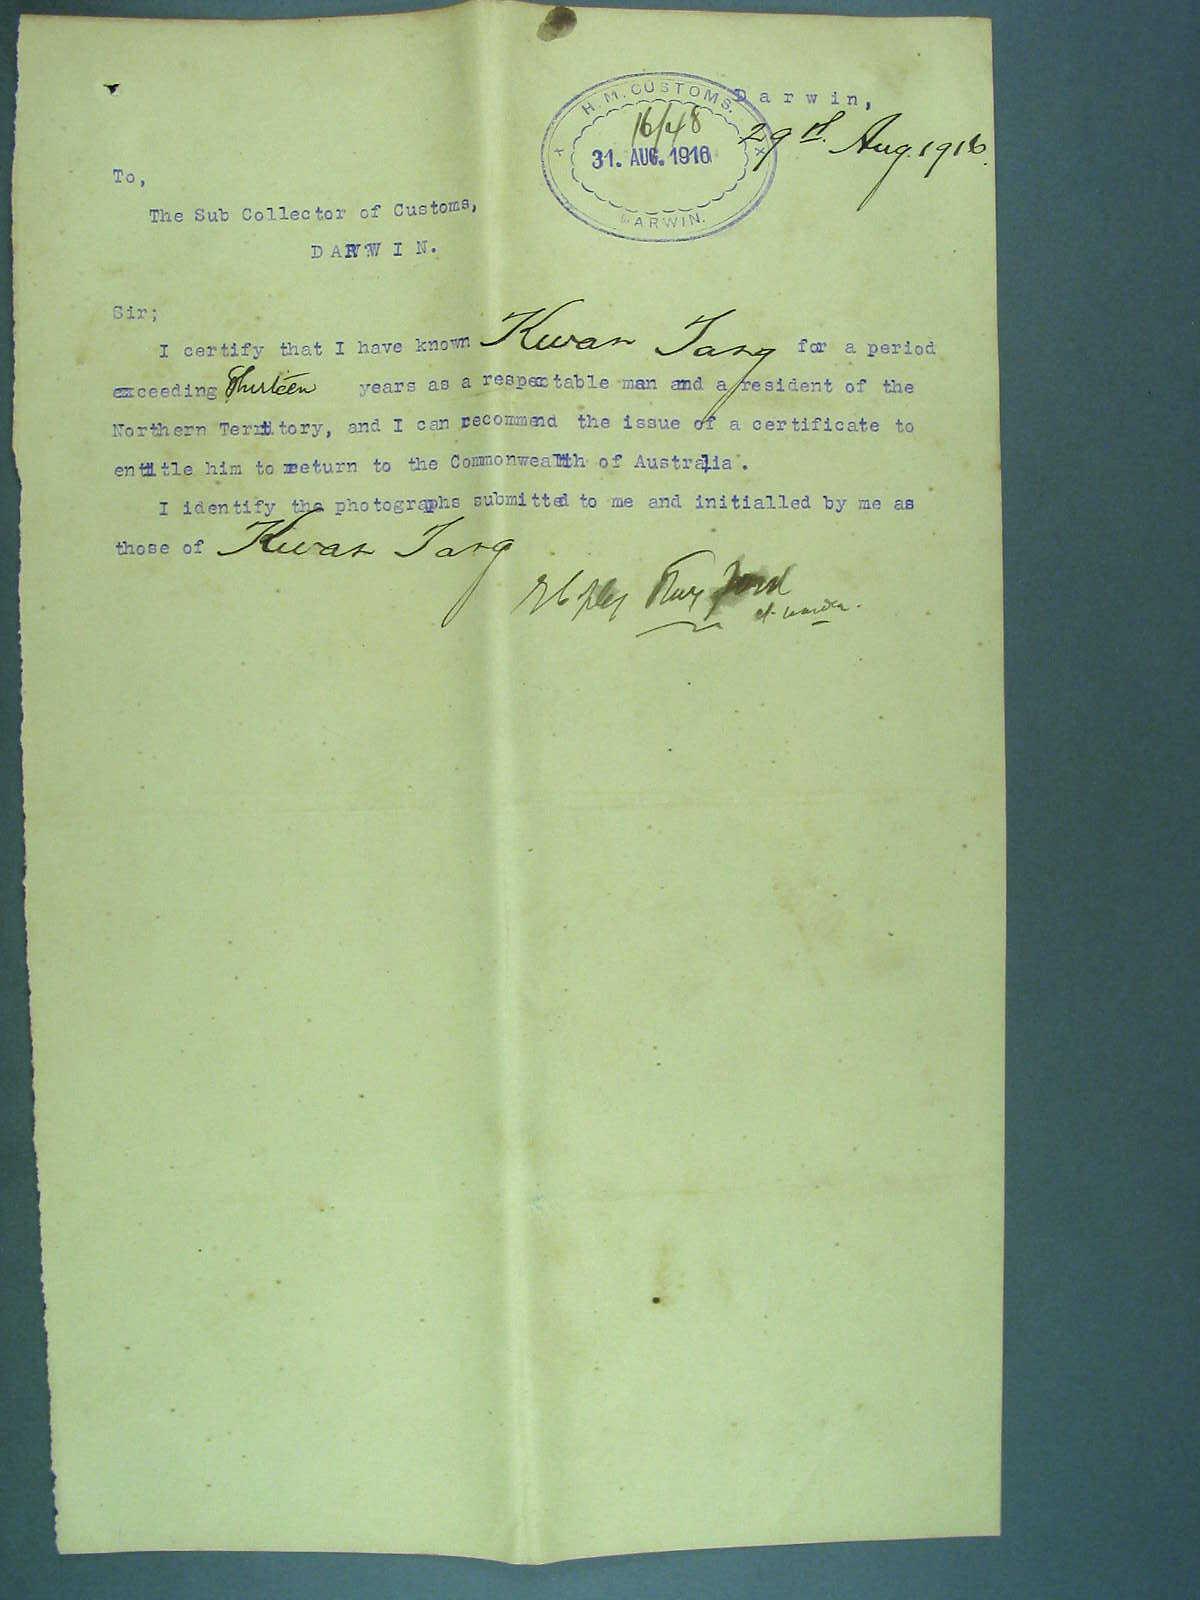 H.M. CUSTOMS.
16/48
31. AUG. 1916
DARWIN.
Darwin,
29th. Aug. 1916.
To,
The Sub Collector of Customs,
DARWIN.
Sir;
I certify that I have known Kwan Tang for a period
exceeding Thirteen years as a respectable man and a resident of the
Northern Territory, and I can recommend the issue of a certificate to
entitle him to return to the Commonwealth of Australia.
I identify the photographs submitted to me and initialled by me as
those of Kwan Tang